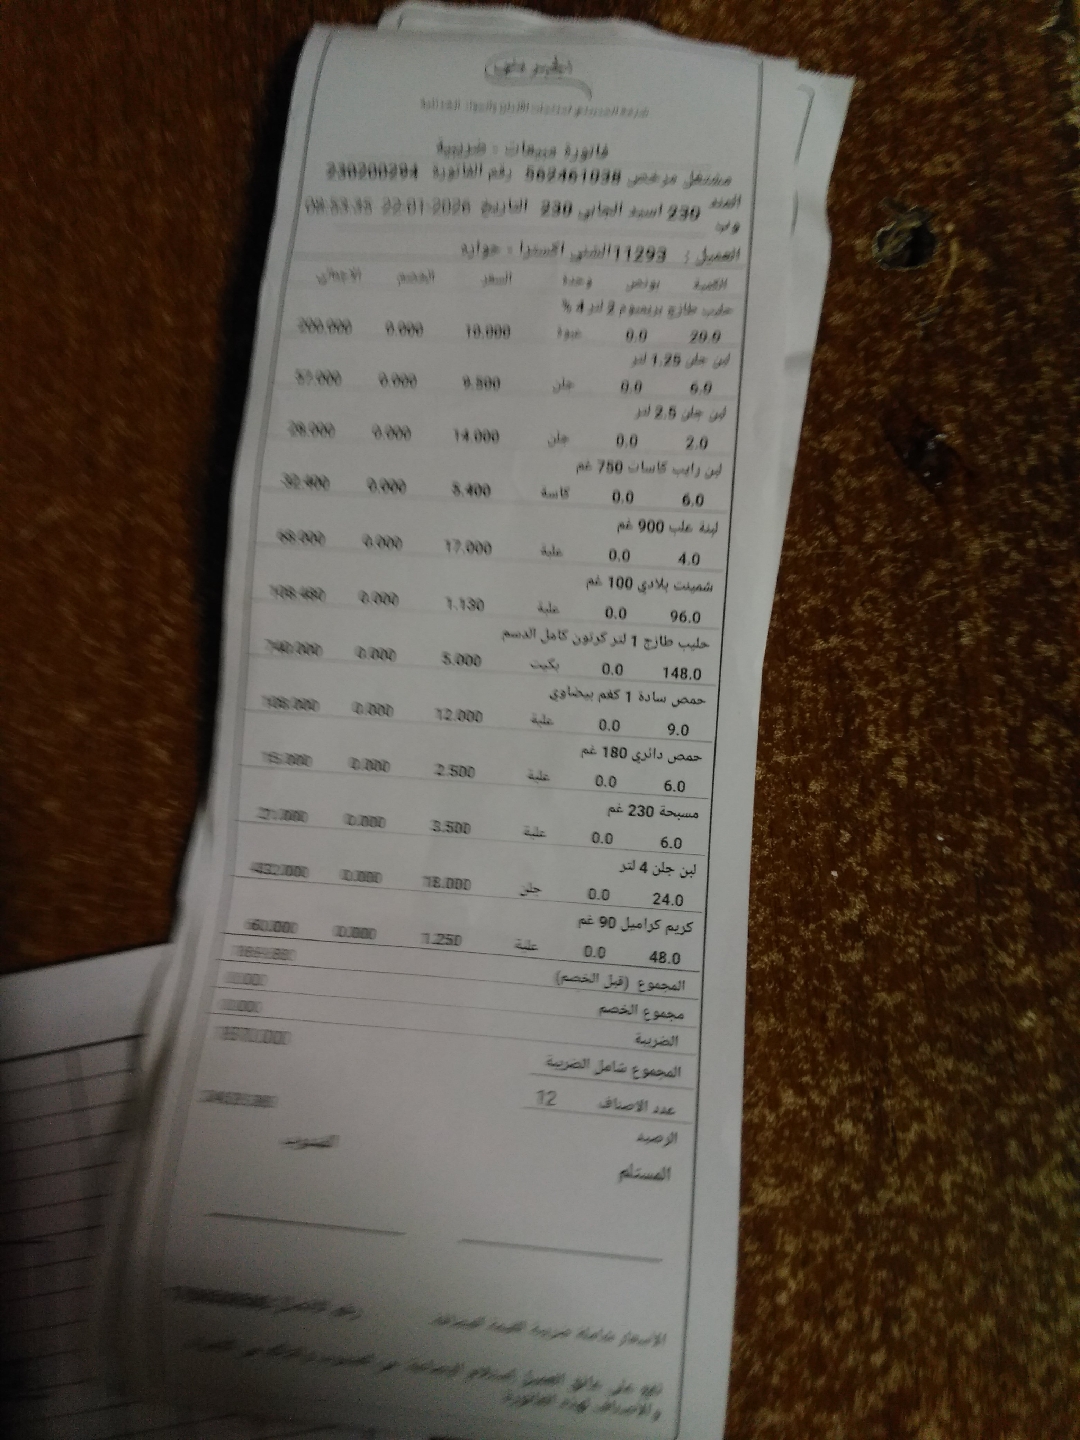 فاتورة مبيعات : ضريبية
مشتغل مرخص 562461038 رقم الفاتورة 230200294
230 اسيد الجاني 230 التاريخ 22-01-2026 08:53:35
العميل : 11293 الشني اكسترا - حواره
الكمية بونص وحدة السعر الخصم الاجمالي
حليب طازج بريميوم 2 لتر 4 %
20.0 0.0 عبوة 10.000 0.000 200.000
لبن جلن 1.25 لتر
6.0 0.0 جلن 9.500 0.000 57.000
لبن جلن 2.5 لتر
2.0 0.0 جلن 14.000 0.000 28.000
لبن رايب كاسات 750 غم
6.0 0.0 كاسة 5.400 0.000 32.400
لبنة علب 900 غم
4.0 0.0 علبة 17.000 0.000 68.000
شمينت بلادي 100 غم
96.0 0.0 علبة 1.130 0.000 108.480
حليب طازج 1 لتر كرتون كامل الدسم
148.0 0.0 بكيت 5.000 0.000 740.000
حمص سادة 1 كغم بيضاوي
9.0 0.0 علبة 12.000 0.000 108.000
حمص دائري 180 غم
6.0 0.0 علبة 2.500 0.000 15.000
مسبحة 230 غم
6.0 0.0 علبة 3.500 0.000 21.000
لبن جلن 4 لتر
24.0 0.0 جلن 18.000 0.000 432.000
كريم كراميل 90 غم
48.0 0.0 علبة 1.250 0.000 60.000
المجموع (قبل الخصم)
مجموع الخصم 0.000
الضريبة 0.000
المجموع شامل الضريبة
عدد الاصناف 12
الرصيد
المستلم المندوب
الاسعار شاملة ضريبة القيمة المضافة